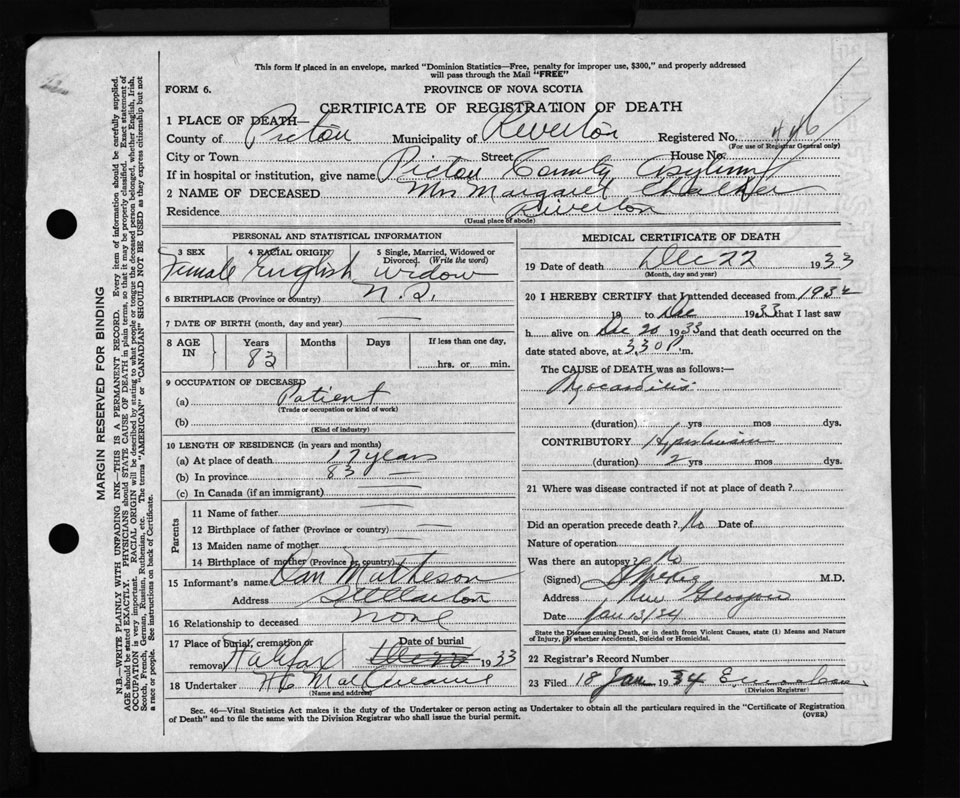 This form if placed in an envelope, marked "Dominion Statistics—Free, penalty for improper use, $300," and properly addressed
will pass through the Mail "FREE"
FORM 6.
PROVINCE OF NOVA SCOTIA
CERTIFICATE OF REGISTRATION OF DEATH
1 PLACE OF DEATH—
County of Pictou Municipality of Riverton Registered No. 446
(For use of Registrar General only)
City or Town Street House No.
If in hospital or institution, give name Pictou County Asylum
2 NAME OF DECEASED Mrs Margaret Chalker
Residence Riverton
(Usual place of abode)
PERSONAL AND STATISTICAL INFORMATION
3 SEX 4 RACIAL ORIGIN 5 Single, Married, Widowed or
Divorced. (Write the word)
Female English widow
6 BIRTHPLACE (Province or country) N.S.
7 DATE OF BIRTH (month, day and year) —
8 AGE IN Years Months Days If less than one day,
83 hrs. or min.
9 OCCUPATION OF DECEASED
(a) Patient
(Trade or occupation or kind of work)
(b)
(Kind of industry)
10 LENGTH OF RESIDENCE (in years and months)
(a) At place of death 17 years
(b) In province 83 —
(c) In Canada (if an immigrant) —
Parents
11 Name of father —
12 Birthplace of father (Province or country) —
13 Maiden name of mother —
14 Birthplace of mother (Province or country) —
15 Informant's name Dan Matheson
Address Stellarton
16 Relationship to deceased none
17 Place of burial, cremation or Date of burial
removal Halifax Dec 22 1933
18 Undertaker
(Name and address)
MEDICAL CERTIFICATE OF DEATH
19 Date of death Dec 22 1933
(Month, day and year)
20 I HEREBY CERTIFY that I attended deceased from 1932
19 to Dec 1933 that I last saw
h alive on Dec 20 1933 and that death occurred on the
date stated above, at 3.30 P m.
The CAUSE of DEATH was as follows:—
Myocarditis
(duration) yrs mos dys.
CONTRIBUTORY Hypertension
(duration) 2 yrs mos dys.
21 Where was disease contracted if not at place of death?
Did an operation precede death? No Date of
Nature of operation
Was there an autopsy? No
(Signed) M.D.
Address New Glasgow
Date Jan 13/34
State the Disease causing Death, or in death from Violent Causes, state (1) Means and Nature
of Injury, (2) whether Accidental, Suicidal or Homicidal.
22 Registrar's Record Number
23 Filed 18 Jan 1934
(Division Registrar)
Sec. 46—Vital Statistics Act makes it the duty of the Undertaker or person acting as Undertaker to obtain all the particulars required in the "Certificate of Registration
of Death" and to file the same with the Division Registrar who shall issue the burial permit.
(OVER)
MARGIN RESERVED FOR BINDING
N.B.—WRITE PLAINLY WITH UNFADING INK—THIS IS A PERMANENT RECORD. Every item of information should be carefully supplied.
AGE should be stated EXACTLY. PHYSICIANS should STATE CAUSE OF DEATH in plain terms, so that it may be properly classified. Exact statement of
OCCUPATION is very important. RACIAL ORIGIN will be described by stating to what people or tongue the deceased person belonged, whether English, Irish,
Scotch, French, German, Russian, Ruthenian, etc. The terms "AMERICAN" or "CANADIAN" SHOULD NOT BE USED as they express citizenship but not
a race or people. See instructions on back of Certificate.